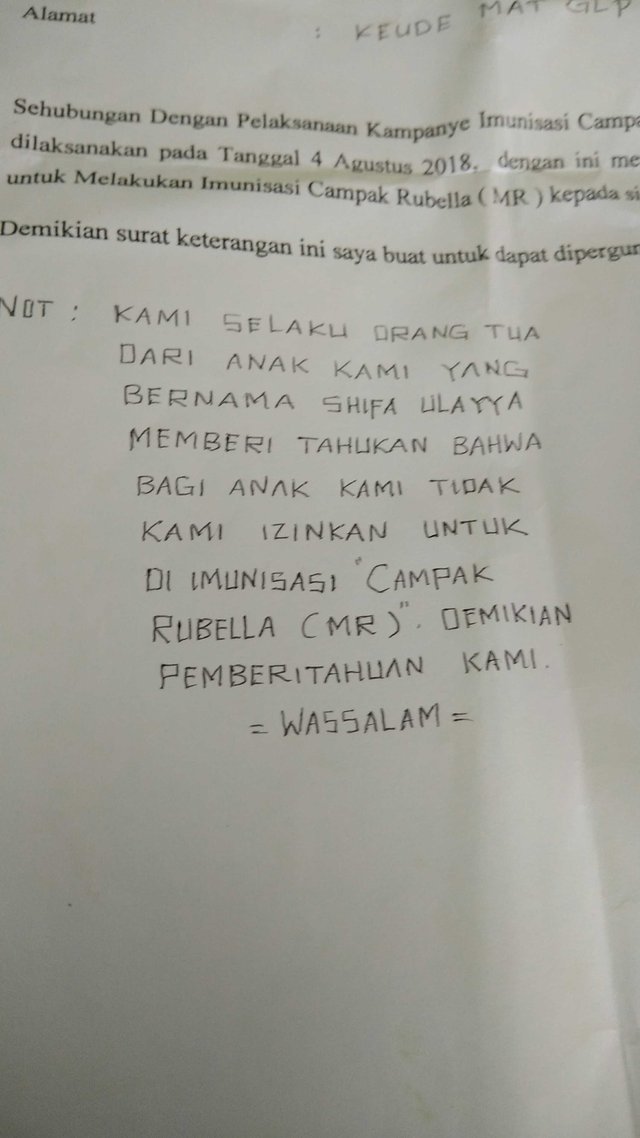 Alamat : KEUDE MAT GLP
Sehubungan Dengan Pelaksanaan Kampanye Imunisasi Campa
dilaksanakan pada Tanggal 4 Agustus 2018, dengan ini me
untuk Melakukan Imunisasi Campak Rubella ( MR ) kepada si
Demikian surat keterangan ini saya buat untuk dapat dipergun
NOT : KAMI SELAKU ORANG TUA
DARI ANAK KAMI YANG
BERNAMA SHIFA ULAYYA
MEMBERI TAHUKAN BAHWA
BAGI ANAK KAMI TIDAK
KAMI IZINKAN UNTUK
DI IMUNISASI "CAMPAK
RUBELLA (MR)". DEMIKIAN
PEMBERITAHUAN KAMI.
= WASSALAM =